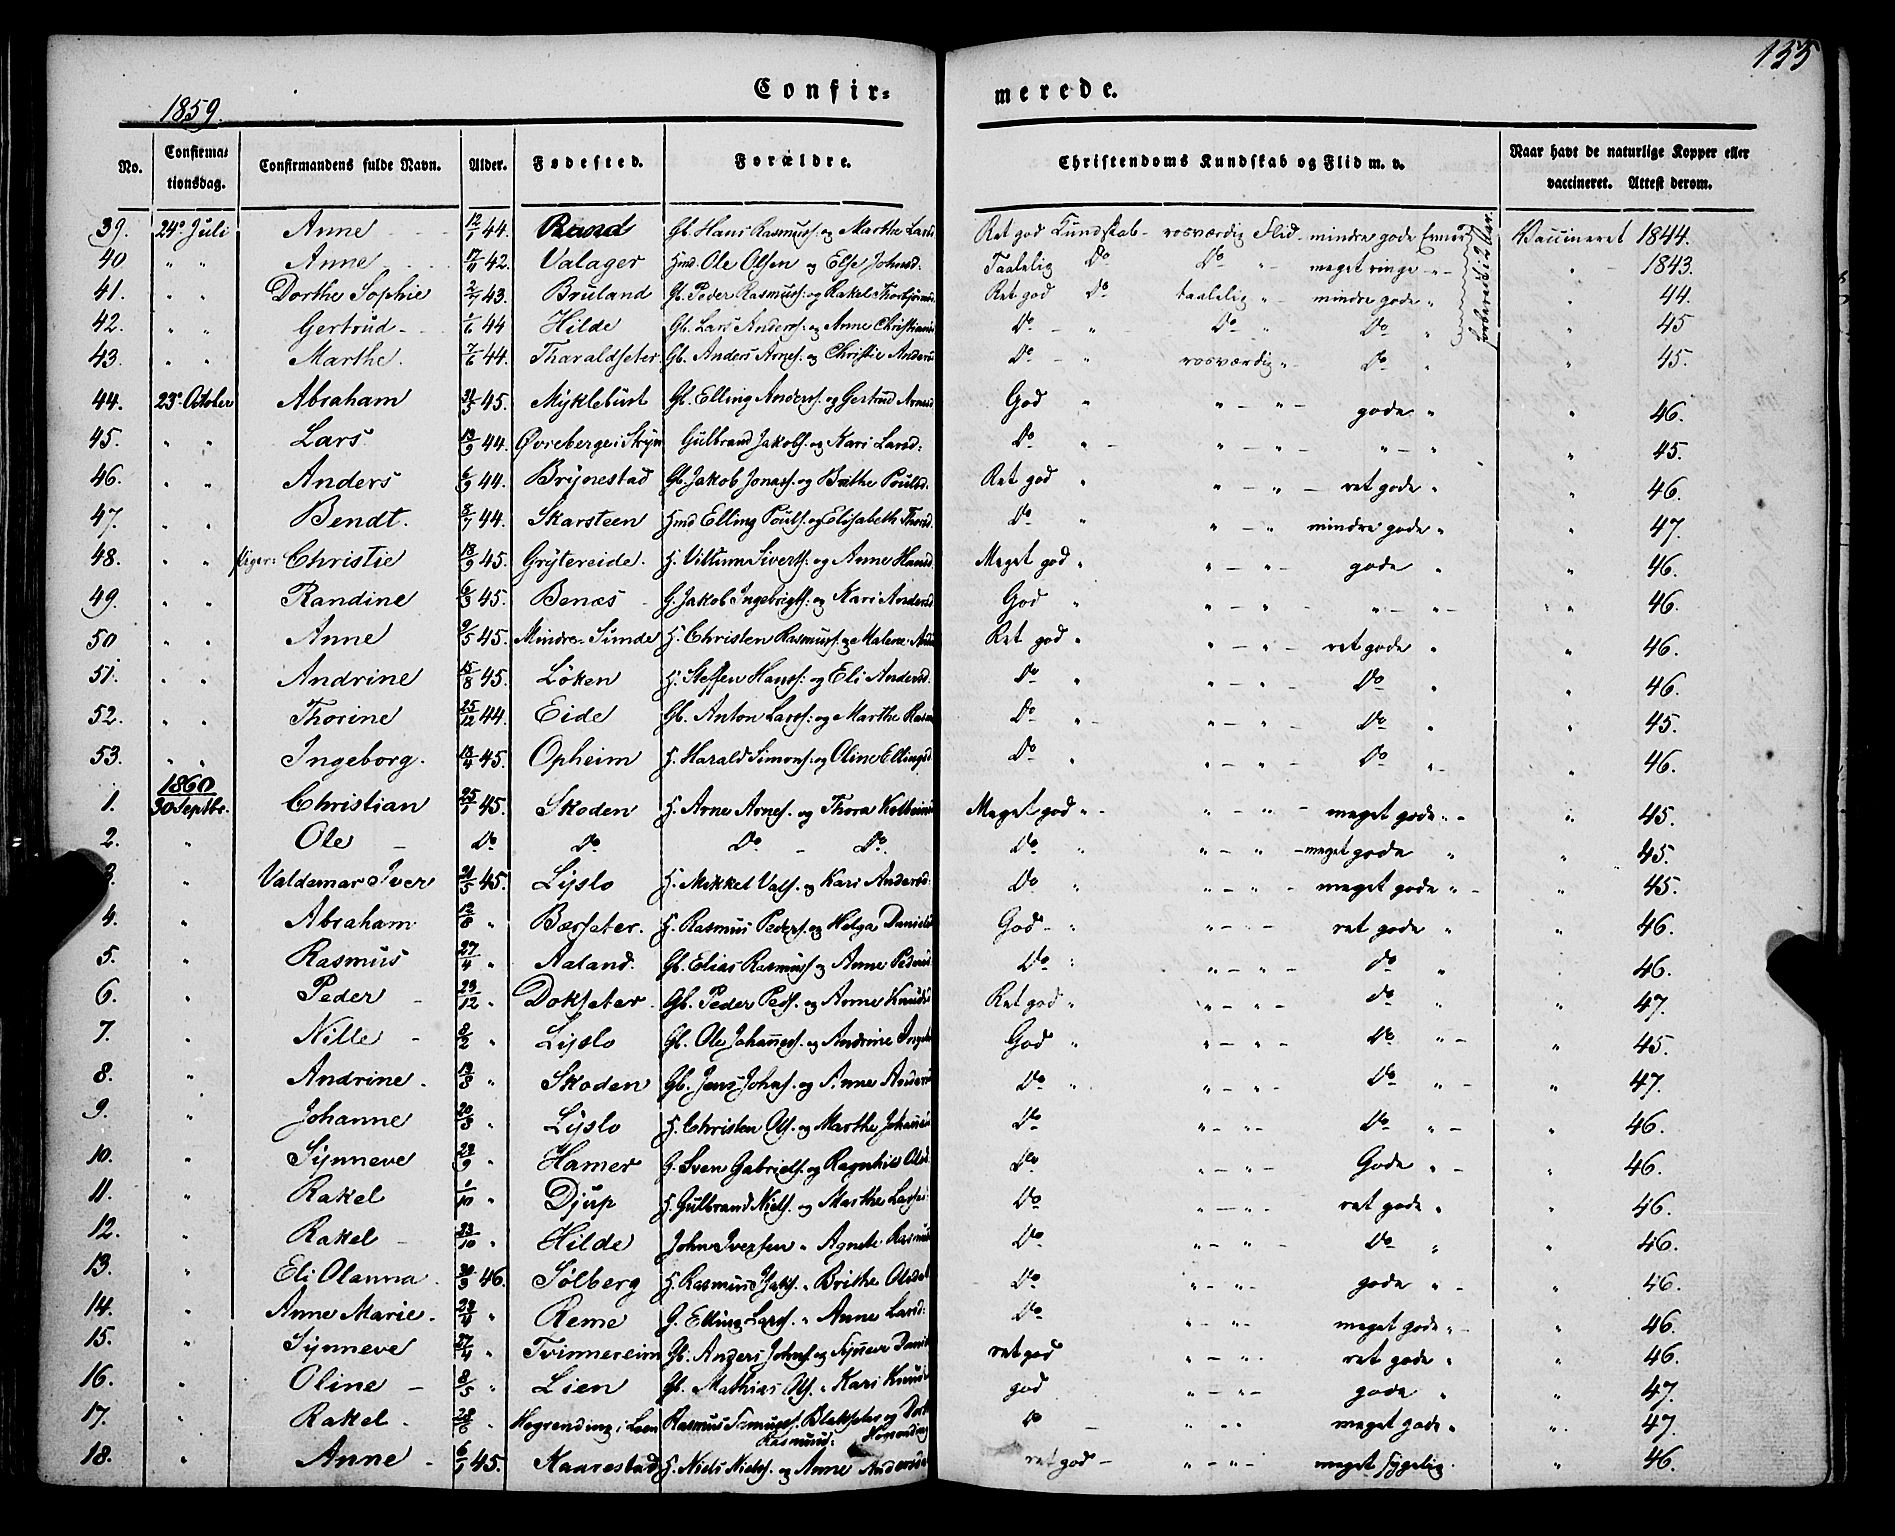 155
Confir= merede.
1859.
No. Confirma= tionsdag. Confirmandens fulde Navn. Alder. Fødested. Forældre. Christendoms Kundskab og Flid m. v. Naar havt de naturlige Kopper eller vaccineret. Attest derom.
39. 24de Juli Anne 12/1 44. Rand Gb. Hans Rasmuss. og Marthe Larsd Ret god Kundskab - rosværdig Flid - mindre gode Evner Vaccineret 1844.
forbered. i 2 Aar.
40 " " Anne 17/11 42. Valager Hmd Ole Olsen og Else Johnsd: Taalelig Do Do " meget ringe " - 1843.
41. " " Dorthe Sophie 2/7 43. Bruland Gb. Peder Rasmuss: og Rakel Ret god Do taalelig " - mindre gode " " 44.
42. " " Gertrud 1/6 44 Hilde Gb. Lars Anderss: og Anne Do - " Do " Do " " 45
43. " " Marthe. 7/6 44. Tharaldseter. Gb. Anders Arnes. og Christie Anders Do - " rosværdig " - Do " " 45.
44. 23de October Abraham 31/3 45. Myklebust Gb. Elling Anderss. og Gertrud Arnesd God " " - " - gode " " 46.
45. " " Lars. 19/9 44. Øvreberge i Stryn Gulbrand Jakobs. og Kari Larsd: Do " - " - " - " - " " 45.
46. " " Anders 6/9 44. Brynestad Gb. Jakob Jonass. og Brithe Poulsd. Ret god " " - " - ret gode " " 46.
47. " " Bendt. 8/7 44. Skarsteen Hmd Elling Pouls. og Elisabeth Thorsd. Do " " - " mindre gode " " 47.
48. " " Piger: Christie 18/9 45. Grytereide. H. Villum Siverts: og Anne Hansd Meget god " " - " - gode " " 46.
49. " " Randine 6/3 45. Benes G. Jakob Ingebrigts: og Kari Andersd God " " - " - " - " - " 46.
50 " " Anne 9/5 45. Mindre-Sunde H. Christen Rasmuss. og Malene Ret god " " - " - ret gode " " 46.
51. " " Andrine 15/8 45. Löken H. Steffen Hanss: og Eli Andersd. Do " " - " - Do " " 46.
52. " " Thorine 25/12 44. Eide Gb. Anton Larss: og Marthe Do " - " - " - Do " " 45.
53. " " Ingeborg. 13/4 45. Opheim H. Harald Simons. og Oline Ellingsd Do " " - " - Do " - " 46.
1860
1. 30 Septbr. Christian 25/1 45. Skoden H. Arne Arnes. og Thora Meget god " - " - " - meget gode " - " 45.
2. " Ole - Do Do. Do - Do. Do " " - " - meget gode " " 45.
3. " Valdemar Iver 21/5 45. Lyslo H. Mikkel Vals. og Kari Andersd: Do " " - " - meget gode " - " 45.
4. " Abraham 12/8 " Bærseter. H. Rasmus Peders. og Helga Daniels God - " " - " - ret gode " " 46.
5. " Rasmus 27/4 " Aaland. Gb. Elias Rasmuss og Anne Pedersd Do " " - " - do " " 46.
6. " Peder - 23/12 " Dokseter. Gb. Peder Peds. og Anne Knuds Ret god " " - " - do " " 47.
7. " Nille - 8/2 " Lyslo Gb. Ole Johanness. og Andrine God " " - " - Do " - " 45.
8. " Andrine. 19/8 " Skoden Gb. Jens Johns. og Anne Do " " - " - Do " - " 47.
9. " Johanne 20/3 " Lyslo H. Christen Ols. og Marthe Do " - " - Do " - " 46.
10. " Synneve 29/9 " Hamer G. Sven Gabriels. og Ragnhil Olsd. Do " - " - Gode " - " 46.
11. " Rakel 1/10 " Djup H. Gulbrand Niels. og Marthe Do " - " - ret gode " " 46.
12. " Rakel - 23/10 " Hilde John Iversen " Agnete Rasmus Do " - " - Do " " 46.
13. " Eli Olanna. 30/3 46. Solberg H. Rasmus " Brithe Do " - " - gode " - " 46.
14. " Anne Marie. 28/4 " Reme G. Elling Larss. " Anne Larsd: Do " - " - meget gode " - " 46.
15. " Synneve 27/4 " Tvinnereim Gb. Anders Johns. og Synneve ret god " - " - ret gode " " 46.
16. " Oline - 8/5 " Lien Gb. Mathias Ols. " Kari god " - " - gode " " 47.
17. " Rakel. 28/6 " i Leen Rasmus Blakseter og do - " - " - meget gode " " 47.
Rasmus:
18. " Anne - 6/1 45. Kaarestad H. Niels Niels. og Anne Andersd ret god - " - " - meget sygelig. " 46.